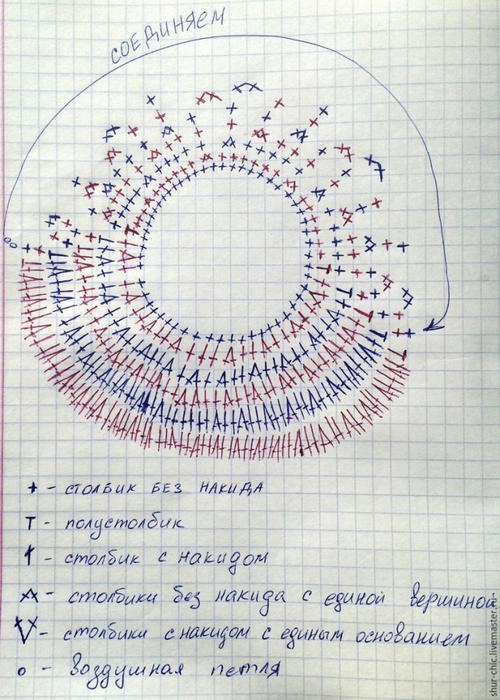 СОЕДИНЯЕМ
+ - СТОЛБИК БЕЗ НАКИДА
т - полустолбик
† - столбик с накидом
- столбики без накида с единой вершиной
- столбики с накидом с единым основанием
o - воздушная петля
mur-chic.livemaster.ru